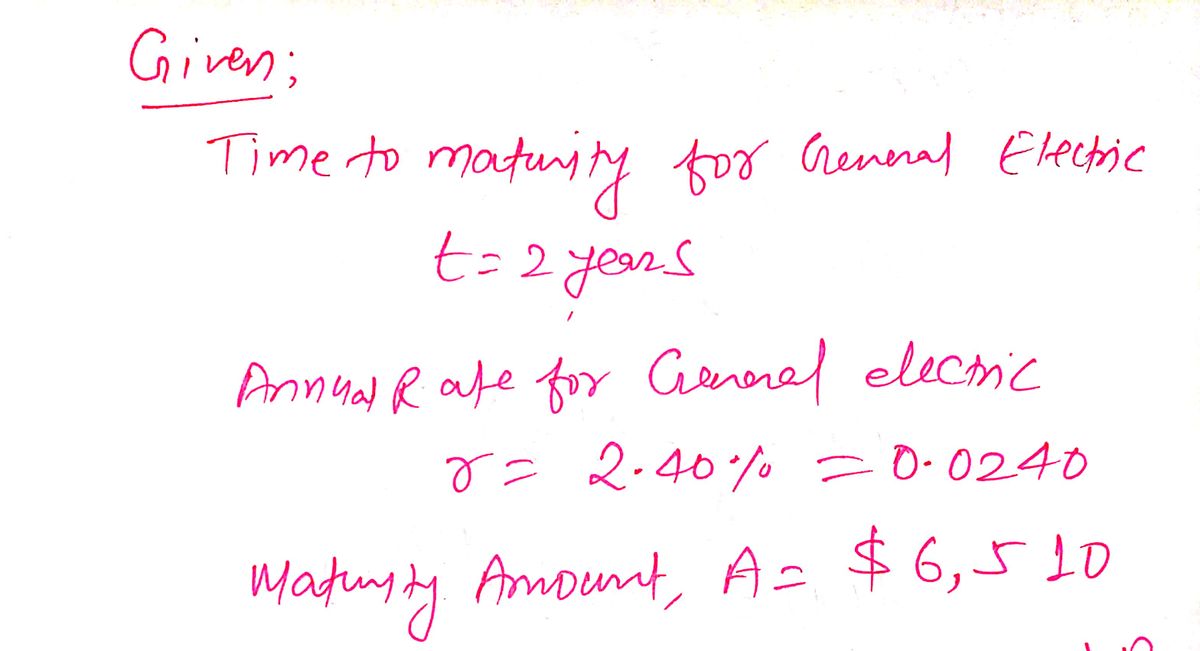 Given;
Time to maturity for General Electric
t = 2 years
Annual Rate for General electric
r = 2.40% = 0.0240
Maturity Amount, A = $6,510